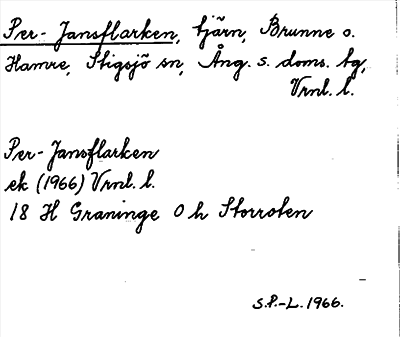 Per-Jansflarken, tjärn, Brunne o.
Hamre, Stigsjö sn, Ång. s. doms. tg,
Vrnl. l.
Per-Jansflarken
ek (1966) Vrnl. l.
18 H Graninge 0 h Storroten
S.P.-L. 1966.